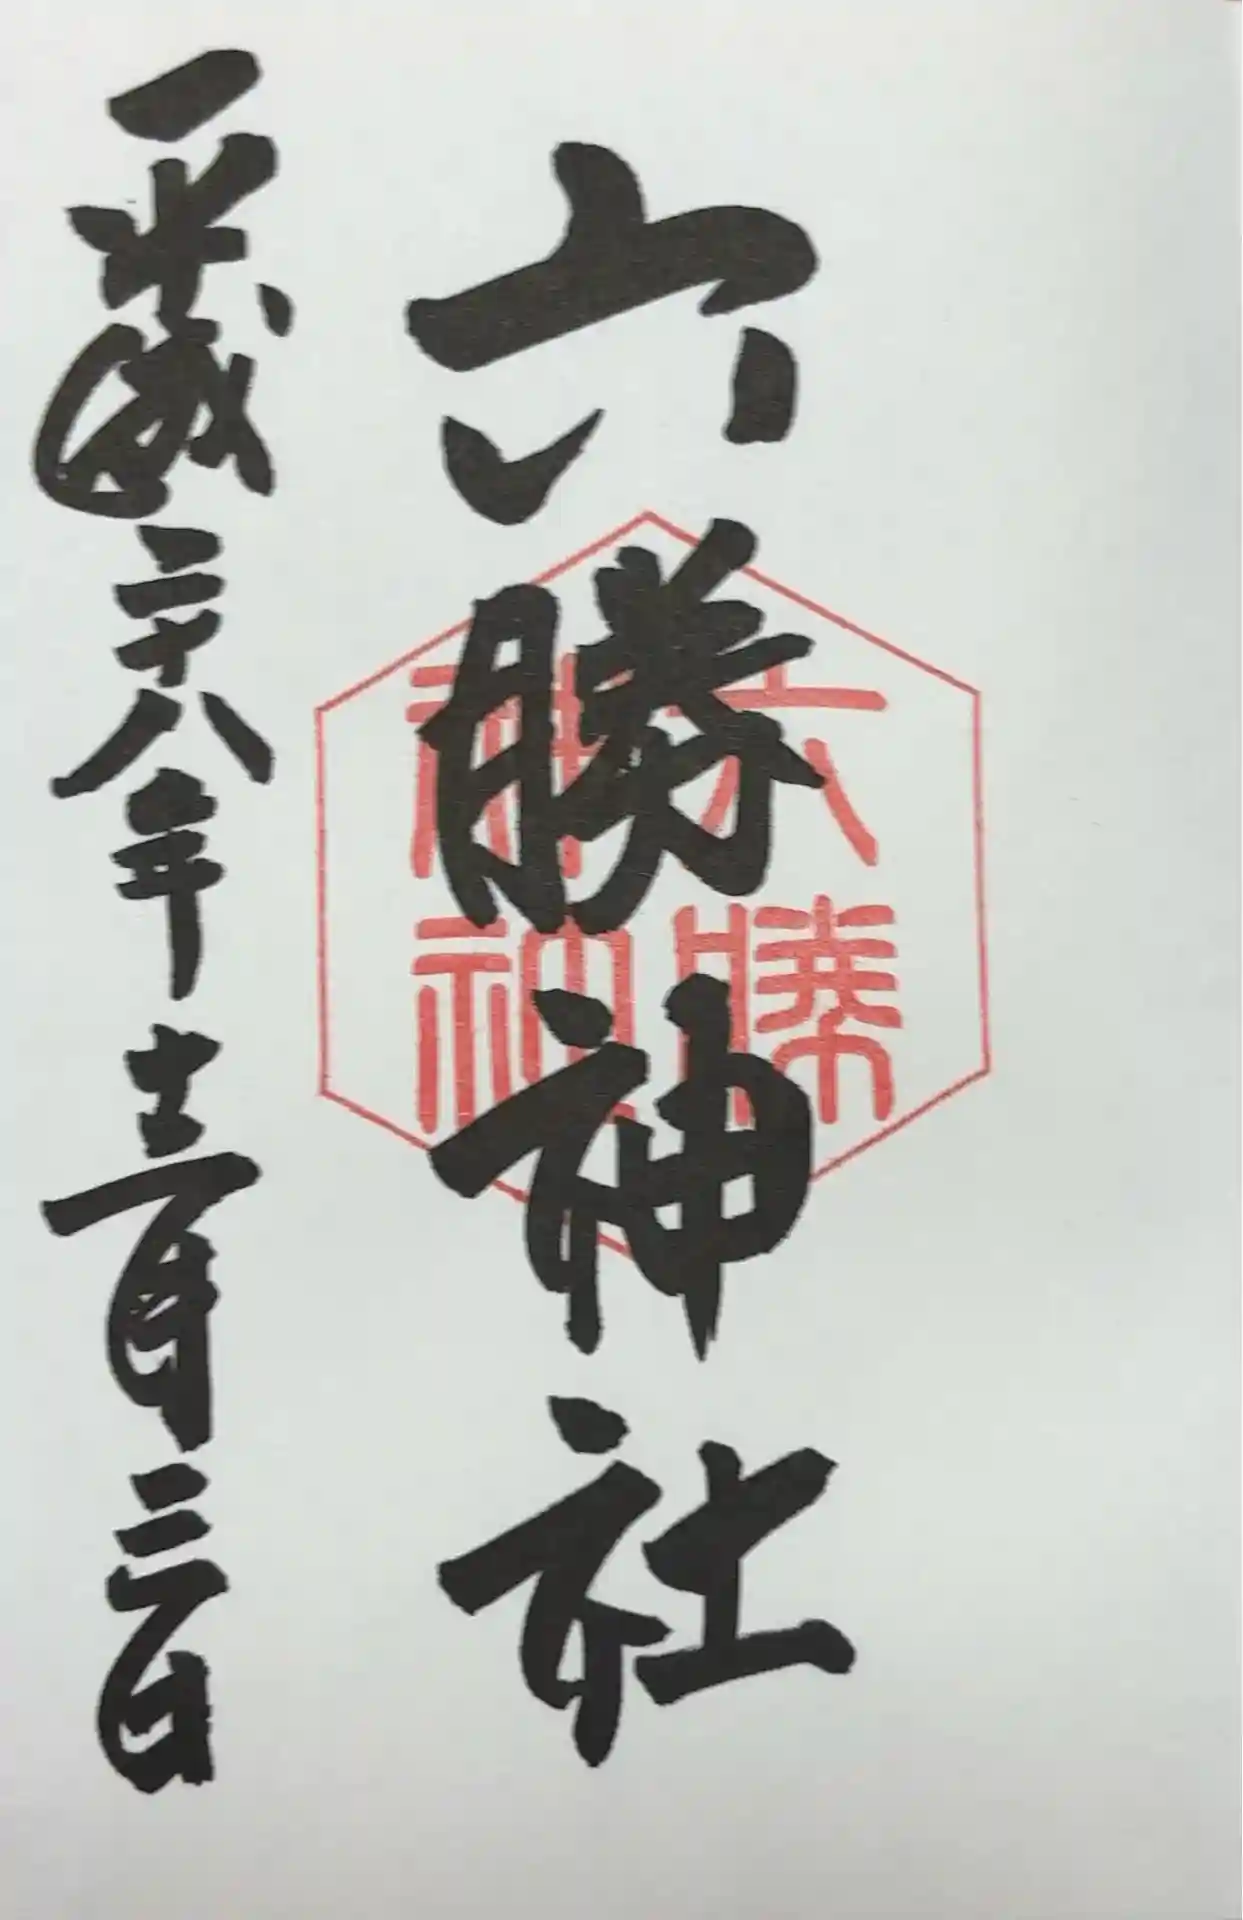 六勝神社
平成二十八年十二月三日
六勝